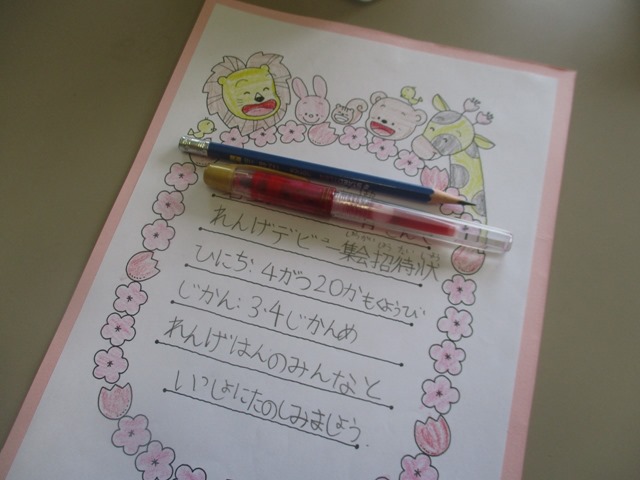 れんげデビュー集会招待状
ひにち:4がつ20かもくようび
じかん:3・4じかんめ
れんげはんのみんなと
いっしょにたのしみましょう.